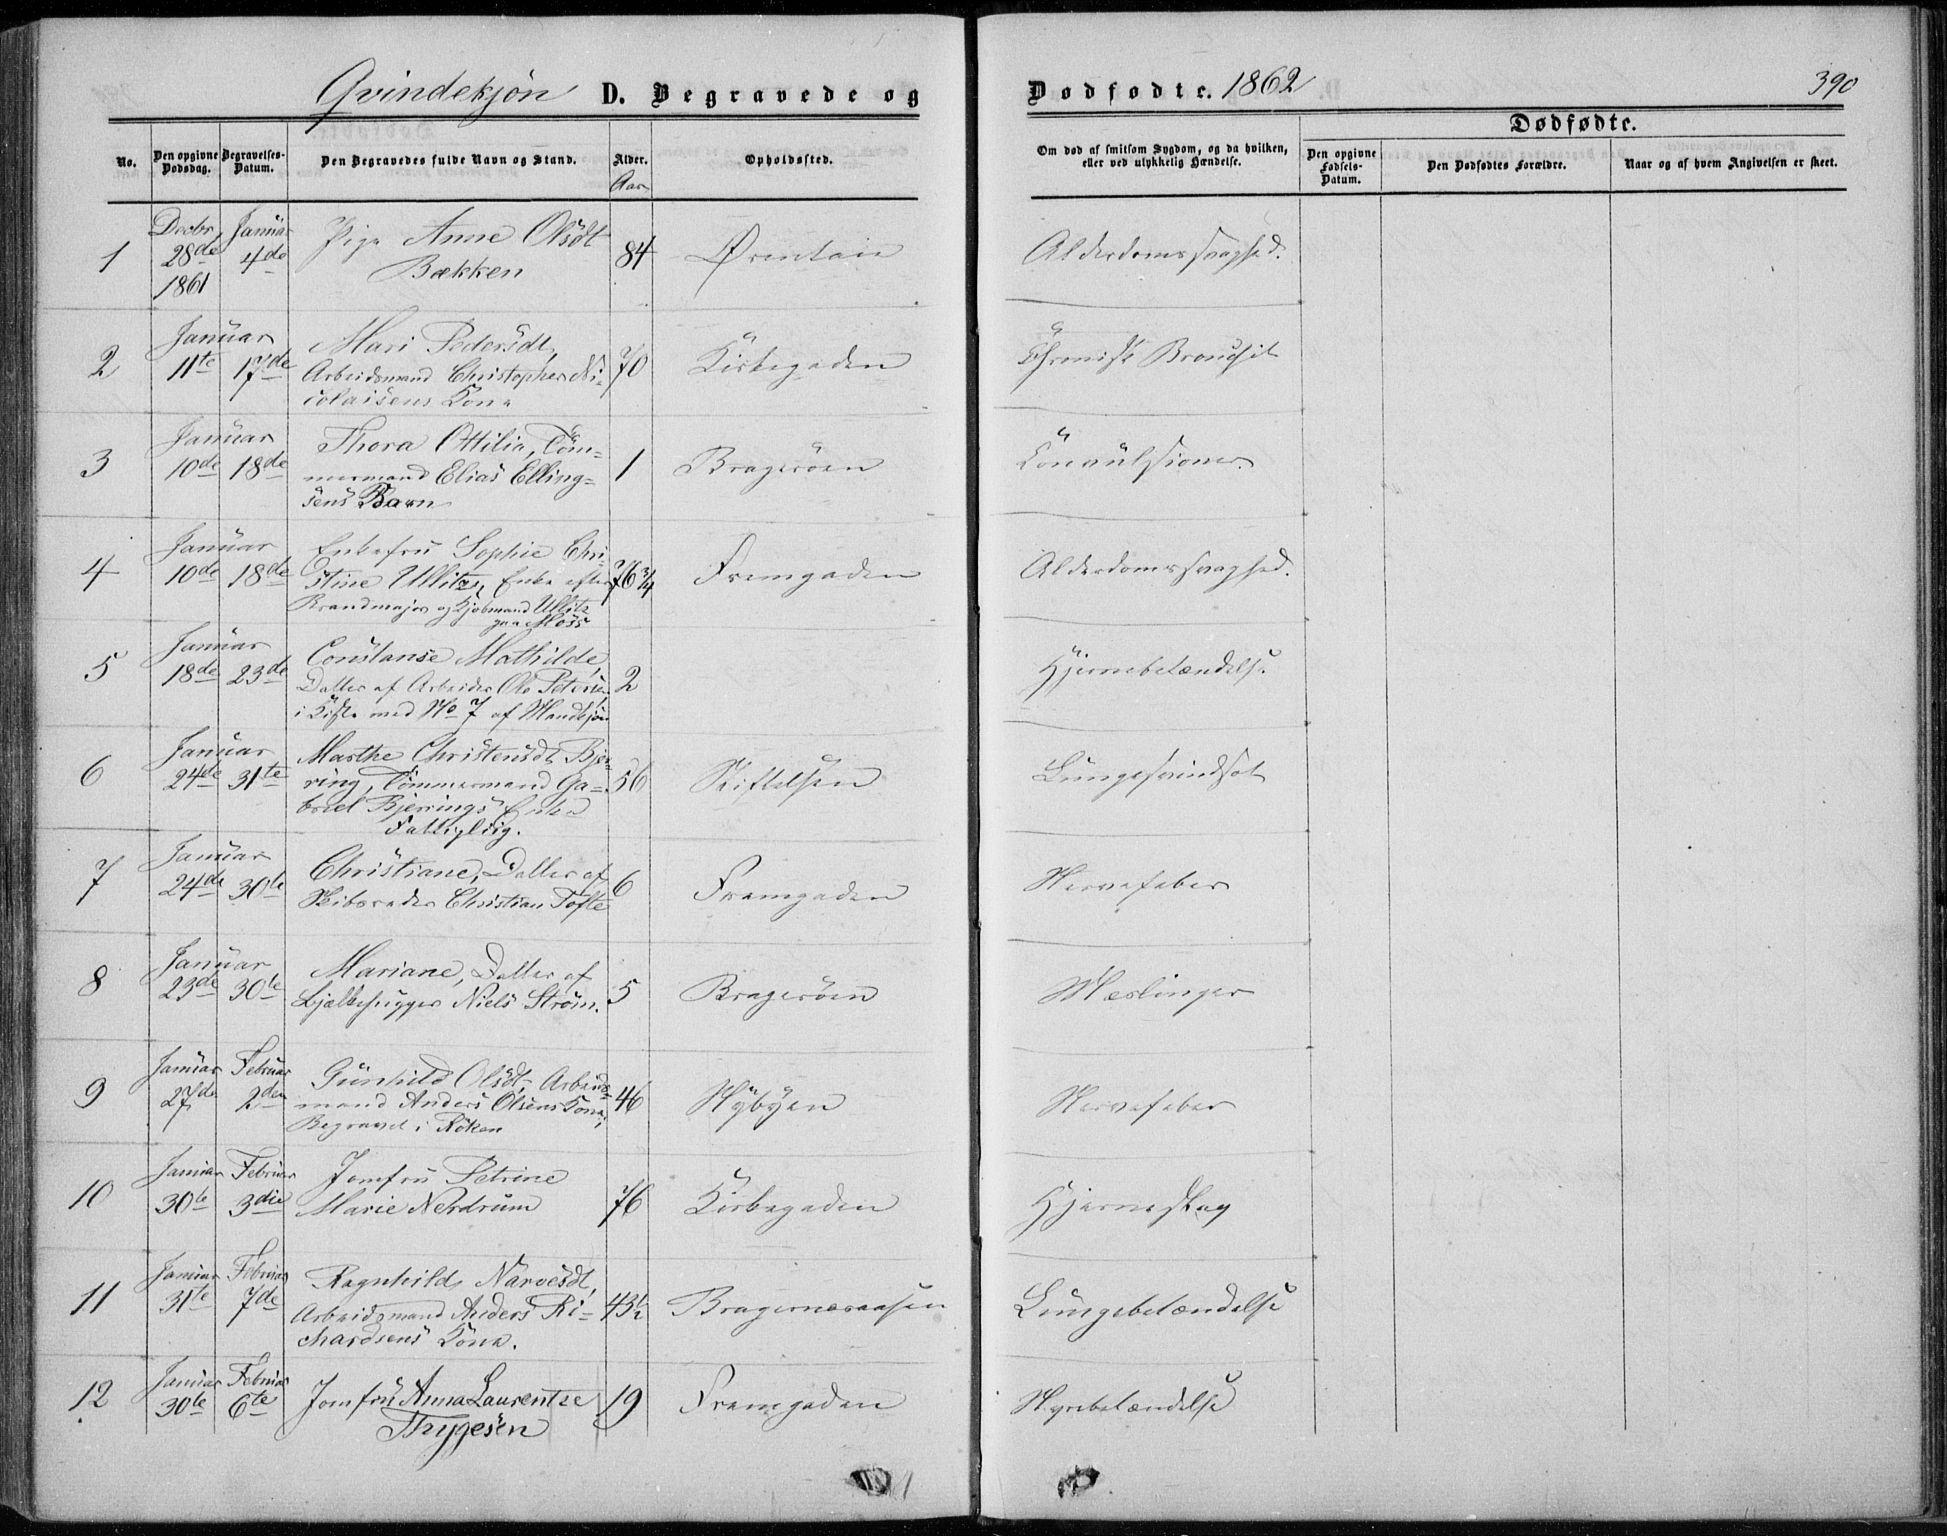 Qvindekjön D. Begravede og
Dødfødte. 1862
390
No.
Den opgivne Dødsdag.
Begravelses-Datum.
Den Begravedes fulde Navn og Stand.
Alder.
Aar
Opholdssted.
Om død af smitsom Sygdom, og da hvilken, eller ved ulykkelig Hændelse.
Dødfødte.
Den opgivne Fødsels-Datum.
Den Dødfødtes Forældre.
Naar og af hvem Angivelsen er skeet.
1 Decbr 28de 1861 Januar 4de Pige Anne Olsdt
Bækken 84 Alderdomssvaghed.
2 Januar 11te 17de Mari Pedersdt,
Arbeidsmand Christopher Ni-
colaisens Kone 70 Kirkegaden Chronisk
3 Januar 10de 18de Thora Ottilia, Töm-
mermand Elias Elling-
sens Barn 1 Bragerøen Convulsioner.
4 Januar 10de 18de Enkefru Sophie Chri-
stine Ullitz, Enke efter
Brandmajor og Kjøbmand Ullitz
paa Moss 76 3/4 Fremgaden Alderdomssvaghed.
5 Januar 18de 23de Constanse Mathilde,
Datter af Arbeider Ole Petersen
i Kiste med No 7 af Mandkjøn 2 Hjernebetændelse
6 Januar 24de 31te Marthe Christensdt Bjer-
ring, Tömmermand Ga-
briel Bjerrings Enke
Fattiglig. 56 Stiftelsen Lungesvindsot
7 Januar 24de 30te Christiane, Datter af
Skibsreder Christian Tofte 6 Fremgaden Nervefeber
8 Januar 23de 30te Mariane, Datter af
Bjælkehugger Niels Ström. 5 Bragerøen Mæslinger
9 Januar 27de Februar 2den Gunhild Olsdt, Arbeids-
mand Anders Olsens Kone,
Begravet i Röken 46 Nybyen Nervefeber
10 Januar 30te Februar 3die Jomfru Petrine
Marie Nerdrum 76 Kirkegaden Hjerneslag
11 Januar 31te Februar 7de Ragnhild Narvesdt,
Arbeidsmand Anders Ri-
chardsens Kone. 43½ Bragernesaasen Lungebetændelse
12 Januar 30te Februar 6te Jomfru Anna Laurentze
Thygesen 19 Fremgaden Nyrebetændelse